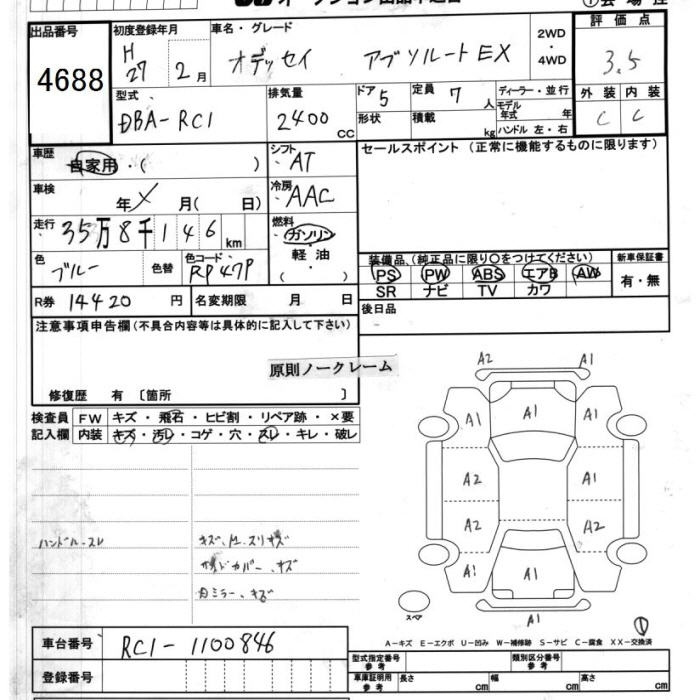 出品番号
4688
初度登録年月
H 27 2月
車名・グレード
オデッセイ アブソルートEX
2WD
・
4WD
評価点
3.5
外装 内装
C C
型式
DBA-RC1
排気量
2400 CC
ドア 5
形状
定員 7 人
積載 kg
ディーラー・並行
モデル年式 年
ハンドル 左・右
車歴
自家用・( )
シフト
AT
セールスポイント (正常に機能するものに限ります)
車検
年 月( 日)
冷房
AAC
走行
35万8千146 km
燃料
ガソリン
軽油
( )
色
ブルー
色替
色コード
RP47P
装備品、(純正品に限り〇をつけてください)
PS PW ABS エアB AW
SR ナビ TV カワ
新車保証書
有・無
R券 14420 円
名変期限 月 日
後日品
注意事項申告欄(不具合内容等は具体的に記入して下さい)
原則ノークレーム
修復歴 有〔箇所 〕
検査員
記入欄
FW キズ・飛石・ヒビ割・リペア跡・×要
内装 キズ・汚レ・コゲ・穴・スレ・キレ・破レ
ハンドル・スレ
キズ、
カバー、キズ
ミラー、キズ
A2 A1
A1 A1 A1
A2 A1
A2 A2
A1 A1 A1
A1
スペア
A-キズ E-エクボ U-凹み W-補修跡 S-サビ C-腐食 XX-交換済
車台番号 RC1-1100846
登録番号
型式指定番号
参考
類別区分番号
参考
車庫証明用
参考
長さ cm
幅 cm
高さ cm